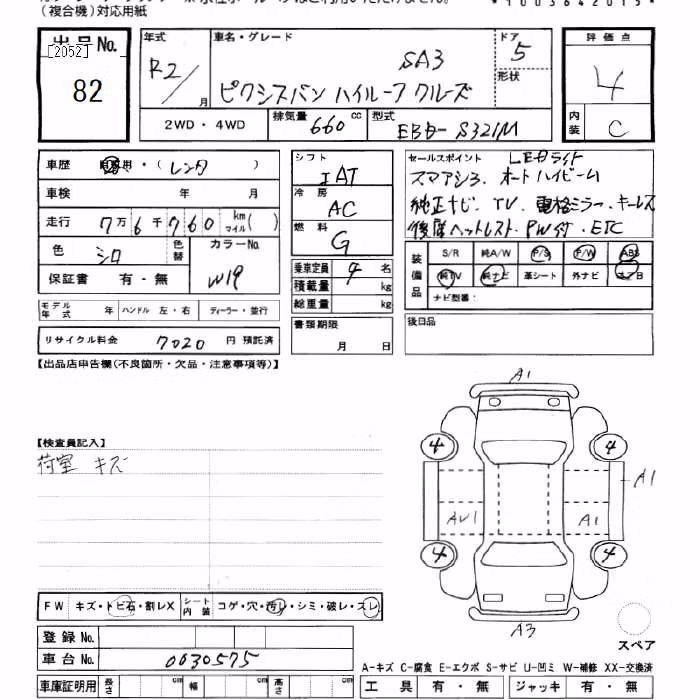 (複合機)対応用紙
出品No.
[2052]
82
年式
R2/
月
車名・グレード
SA3
ピクシスバン ハイルーフ クルーズ
ドア
5
形状
評価点
4
内装
C
2WD・4WD
排気量
660
cc
型式
EBD-S321M
車歴
自家用・(レンタ)
車検 年 月
走行 7万6千760 km マイル( )
色 シロ
色替
カラーNo.
W19
保証書 有・無
シフト
IAT
冷房
AC
燃料
G
乗車定員 4 名
積載量 kg
総重量 kg
セールスポイント LEDライト
スマアシ3、オートハイビーム
純正ナビ、TV、電格ミラー、キーレス
後席ヘッドレスト、PW付、ETC
装備品
S/R 純A/W P/S P/W ABS
純TV 純ナビ 革シート 外ナビ エアB
ナビ型番:
モデル年式 年 ハンドル 左・右 ディーラー・並行
書類期限
月 日
後日品
リサイクル料金 7020 円 預託済
【出品店申告欄(不良箇所・欠品・注意事項等)】
A1
【検査員記入】
荷室 キズ
4
4
A1
AU1
A1
4
4
A3
スペア
FW キズ・トビ石・割レX
シート内装 コゲ・穴・汚レ・シミ・破レ・スレ
登録No.
車台No. 0030575
A-キズ C-腐食 E-エクボ S-サビ U-凹ミ W-補修 XX-交換済
車庫証明用 長さ cm 幅 cm 高さ cm
工具 有・無 ジャッキ 有・無